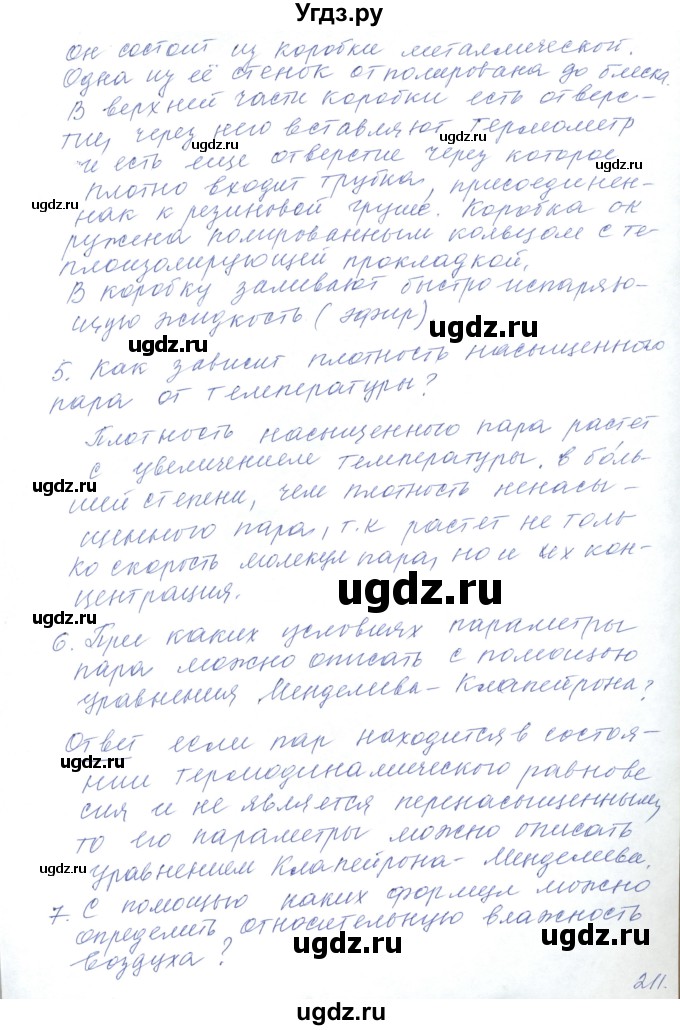 Угдз.ру
он состоит из коробки металлической.
Одна из её стенок отполирована до блеска.
В верхней части коробки есть отверс-
тие, через него вставляют термометр
и есть еще отверстие через которое
плотно входит трубка, присоединен-
ная к резиновой груше. Коробка ок
ружена полированным кольцом с те-
плоизолирующей прокладкой.
В коробку заливают быстро испаряю-
щую жидкость (эфир)
5. Как зависит плотность насыщенного
пара от температуры?
Плотность насыщенного пара растет
с увеличением температуры, в боль-
шей степени, чем плотность ненасы-
щенного пара, т.к растет не толь
ко скорость молекул пара, но и их кон-
центрация.
6. При каких условиях параметры
пара можно описать с помощью
уравнения Менделеева-Клапейрона?
Ответ если пар находится в состоя-
нии термодинамического равнове
сия и не является перенасыщенным,
то его параметры можно описать
уравнением Клапейрона-Менделеева.
7. С помощью каких формул можно
определить относительную влажность
воздуха?
211.
ugdz.ru
ugdz.ru
ugdz.ru
ugdz.ru
ugdz.ru
ugdz.ru
ugdz.ru
ugdz.ru
ugdz.ru
ugdz.ru
ugdz.ru
ugdz.ru
ugdz.ru
ugdz.ru